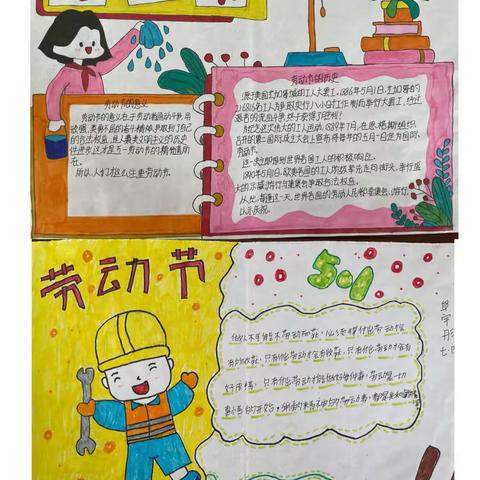 劳动节的意义
劳动节的意义在于劳动者通过斗争,用
顽强、英勇不屈的奋斗精神,争取到了自己
的合法权益,是人类文明民主的历史
性进步,这才是五一劳动节的精髓所
在。
所以,人们才这么注重劳动节。
劳动节的历史
源于美国芝加哥城的工人大罢工,1886年5月1日,芝加哥的
21.6万名工人为争取实行八小时工作制而举行大罢工,经过
艰苦的流血斗争,终于获得了胜利!
为纪念这次伟大的工人运动,1889年7月,在恩格斯组织
召开的第二国际成立大会上宣布将每年的五月一日定为国际
劳动节。
这一决定立即得到世界各国工人的积极响应。
1890年5月1日,欧美各国的工人阶级率先走向街头,举行盛
大的示威游行与集会,争取合法权益。
从此,每逢这一天,世界各国的劳动人民都要集会、游行,
以示庆祝。
劳动节
5.01
七
劳动
有的收获,只有付出劳动才会有收获,只有付出劳动才会有
好成绩,只有付出劳动才能做好每件事,劳动是一切